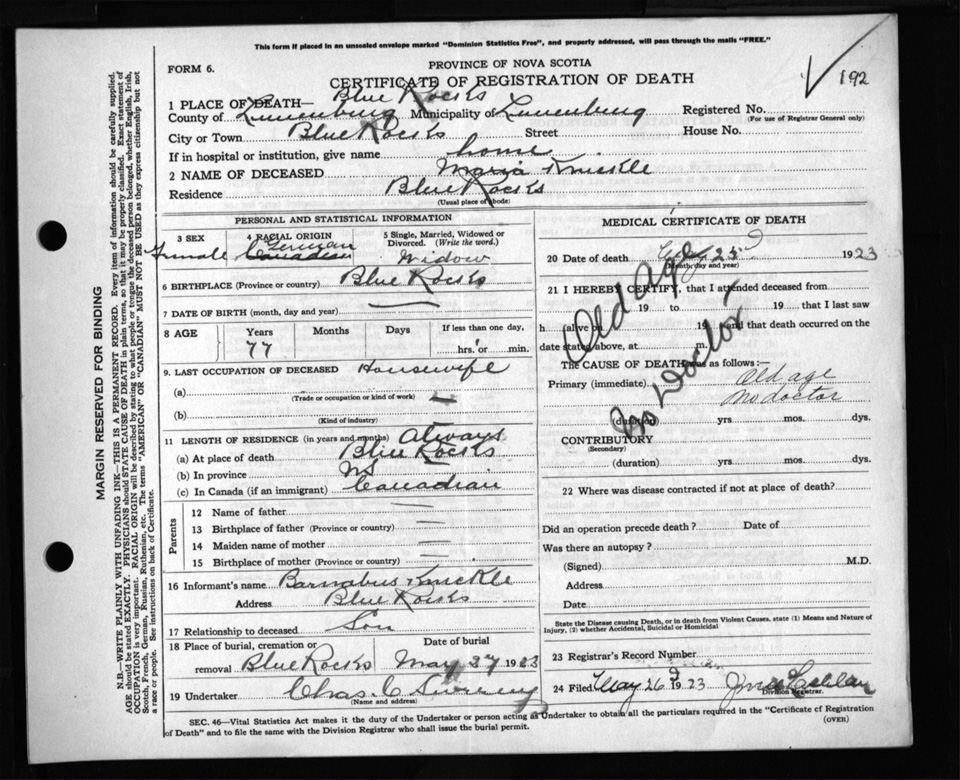 This form if placed in an unsealed envelope marked "Dominion Statistics Free", and properly addressed, will pass through the mails "FREE."
FORM 6.
PROVINCE OF NOVA SCOTIA
CERTIFICATE OF REGISTRATION OF DEATH
192
1 PLACE OF DEATH— Blue Rocks
County of Lunenburg Municipality of Lunenburg Registered No.
(For use of Registrar General only)
City or Town Blue Rocks Street House No.
If in hospital or institution, give name home
2 NAME OF DECEASED Maria Knickle
Residence Blue Rocks
(Usual place of abode)
PERSONAL AND STATISTICAL INFORMATION
3 SEX 4 RACIAL ORIGIN 5 Single, Married, Widowed or Divorced. (Write the word.)
Female German Canadian Widow
6 BIRTHPLACE (Province or country) Blue Rocks
7 DATE OF BIRTH (month, day and year)
8 AGE Years Months Days If less than one day,
77 hrs. or min.
9. LAST OCCUPATION OF DECEASED Housewife
(a) —
(Trade or occupation or kind of work)
(b)
(Kind of industry)
11 LENGTH OF RESIDENCE (in years and months) always
(a) At place of death Blue Rocks
(b) In province NS
(c) In Canada (if an immigrant) Canadian
Parents
12 Name of father —
13 Birthplace of father (Province or country) —
14 Maiden name of mother —
15 Birthplace of mother (Province or country) —
16 Informant's name Barnabus Knickle
Address Blue Rocks
17 Relationship to deceased Son
18 Place of burial, cremation or removal Blue Rocks
Date of burial May 27 1923
19 Undertaker Chas. C
(Name and address)
MEDICAL CERTIFICATE OF DEATH
20 Date of death 25 1923
(Month, day and year)
21 I HEREBY CERTIFY, that I attended deceased from
19 to 19 that I last saw
h (alive on 19 and that death occurred on the
date stated above, at m.
The CAUSE OF DEATH was as follows:—
Primary (immediate) Old age
No doctor
(duration) yrs mos. dys.
Old Age
No Doctor
CONTRIBUTORY
(Secondary)
(duration) yrs mos. dys.
22 Where was disease contracted if not at place of death?
Did an operation precede death? Date of
Was there an autopsy?
(Signed) M.D.
Address
Date
State the Disease causing Death, or in death from Violent Causes, state (1) Means and Nature of
Injury, (2) whether Accidental, Suicidal or Homicidal
23 Registrar's Record Number
24 Filed May 26 1923
Division Registrar.
SEC. 46—Vital Statistics Act makes it the duty of the Undertaker or person acting as Undertaker to obtain all the particulars required in the "Certificate of Registration
of Death" and to file the same with the Division Registrar who shall issue the burial permit.
(OVER)
MARGIN RESERVED FOR BINDING
N.B.—WRITE PLAINLY WITH UNFADING INK—THIS IS A PERMANENT RECORD. Every item of information should be carefully supplied.
AGE should be stated EXACTLY. PHYSICIANS should STATE CAUSE OF DEATH in plain terms, so that it may be properly classified. Exact statement of
OCCUPATION is very important. RACIAL ORIGIN will be described by stating to what people or tongue the deceased person belonged, whether English, Irish,
Scotch, French, German, Russian, Ruthenian, etc. The terms "AMERICAN" OR "CANADIAN" MUST NOT BE USED as they express citizenship but not
a race or people. See instructions on back of Certificate.